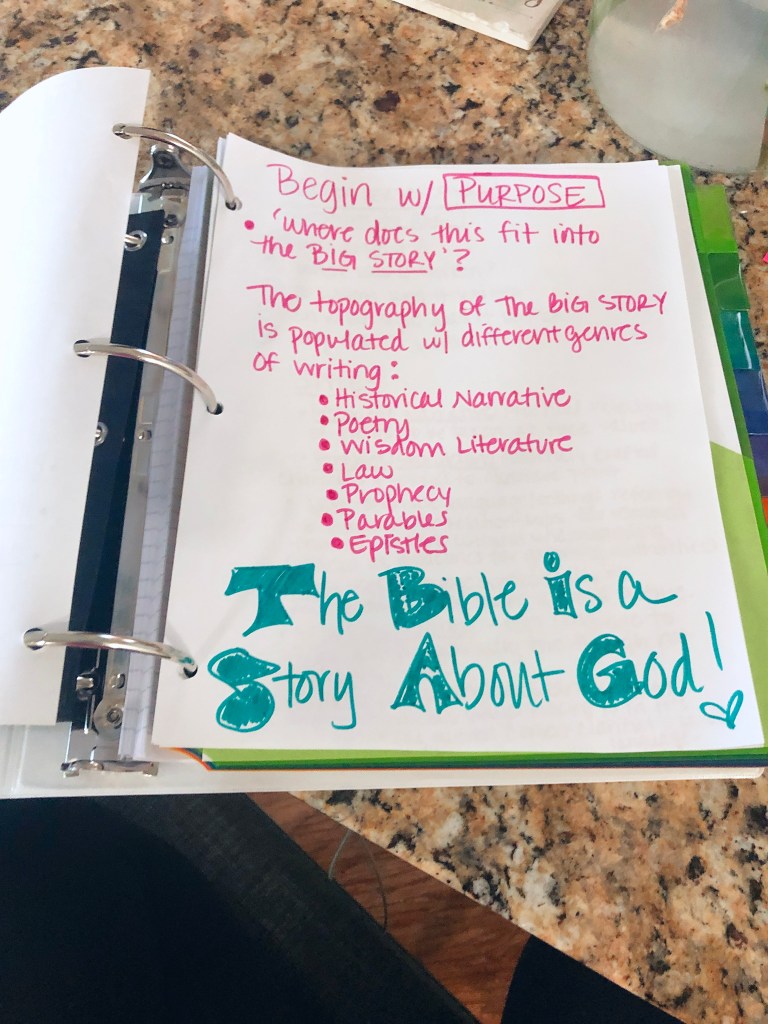 Begin w/ PURPOSE
• 'where does this fit into
the BIG STORY'?
The topography of The BIG STORY
is populated w/ different genres
of writing:
• Historical Narrative
• Poetry
• Wisdom Literature
• Law
• Prophecy
• Parables
• Epistles
The Bible is a
Story About God!